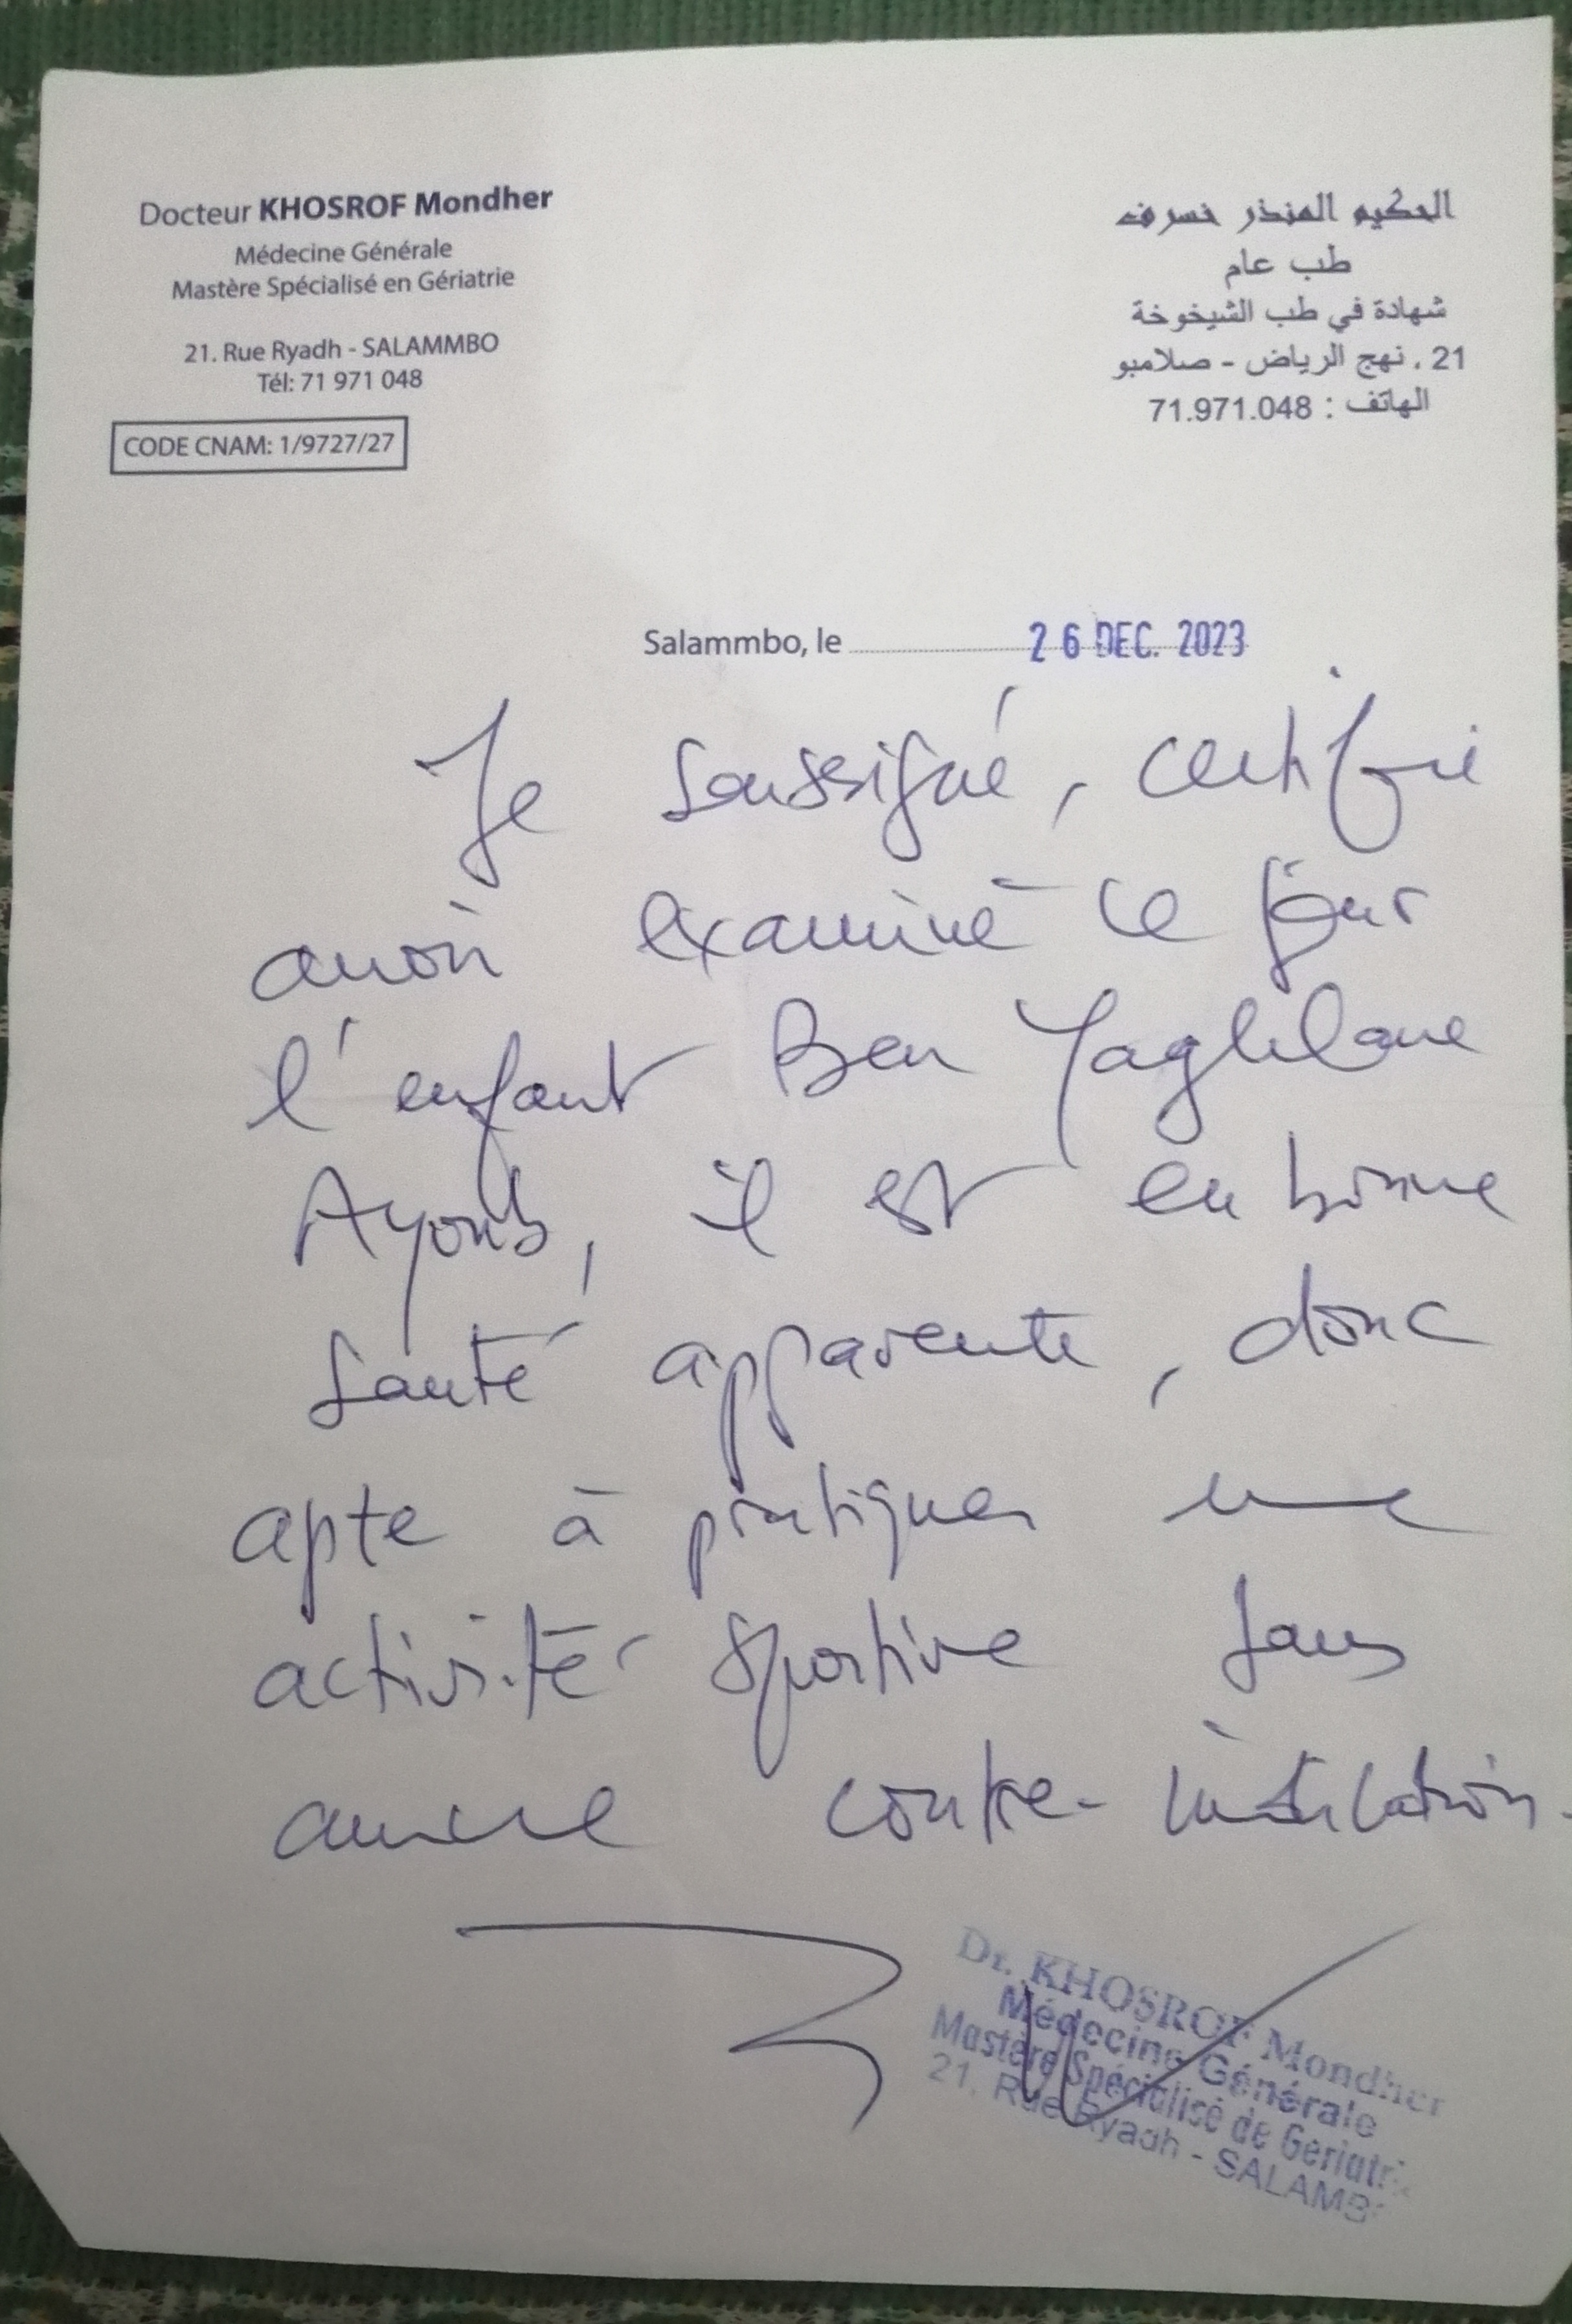 Docteur KHOSROF Mondher
Médecine Générale
Mastère Spécialisé en Gériatrie
21. Rue Ryadh - SALAMMBO
Tél: 71 971 048
CODE CNAM: 1/9727/27
الحكيم المنذر خسرف
طب عام
شهادة في طب الشيخوخة
21 ، نهج الرياض - صلامبو
الهاتف : 71.971.048
Salammbo, le 26 DEC. 2023
Je soussigné, certifie
avoir examiné ce jour
l'enfant Ben Yaghlane
Ayoub, il est en bonne
santé apparente, donc
apte à pratiquer une
activité sportive sans
aucune contre-indication.
Dr. KHOSROF Mondher
Médecine Générale
Mastère Spécialisé de Geriatri
21, Rue Ryadh - SALAMB